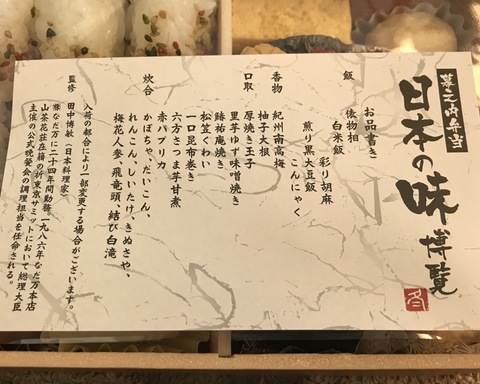 幕之内弁当
日本の味博覧
冬
お品書き
飯
俵物相
白米飯 彩り胡麻
煎り黒大豆飯
こんにゃく
香物
紀州南高梅
柚子大根
口取
厚焼き玉子
里芋ゆず味噌焼き
鰆祐庵焼き
松笠くわい
一口昆布巻き
六方さつま芋甘煮
赤パプリカ
炊合
かぼちゃ、だいこん、
れんこん、しいたけ、きぬさや、
梅花人参、飛竜頭、結び白滝
入荷の都合により一部変更する場合がございます。
監修 田中博敏（日本料理家）
㈱なだ万に二十四年間勤務。一九八六年なだ万本店
山茶花荘在籍の折東京サミットにおいて総理大臣
主催の公式晩餐会の調理担当を任命される。